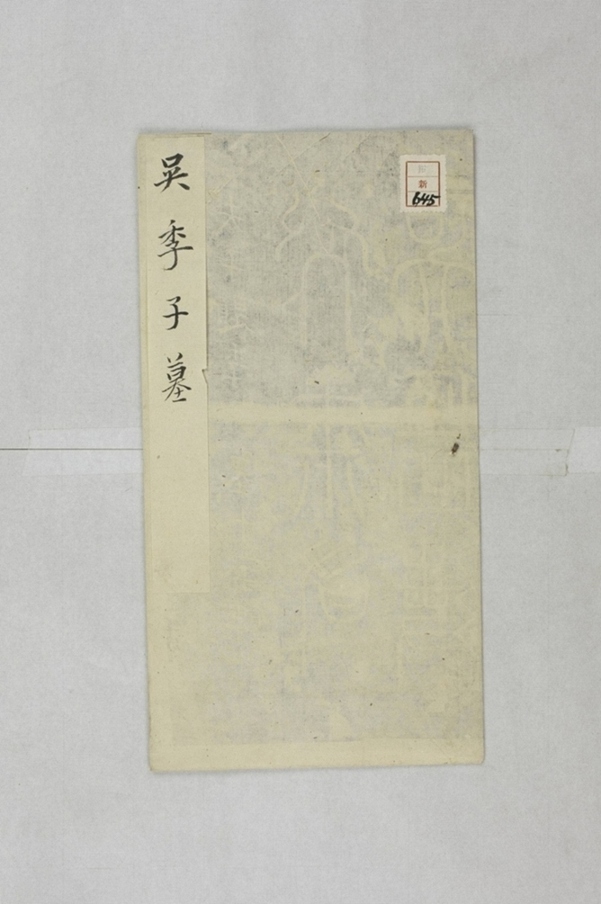 吳季子墓
新
645